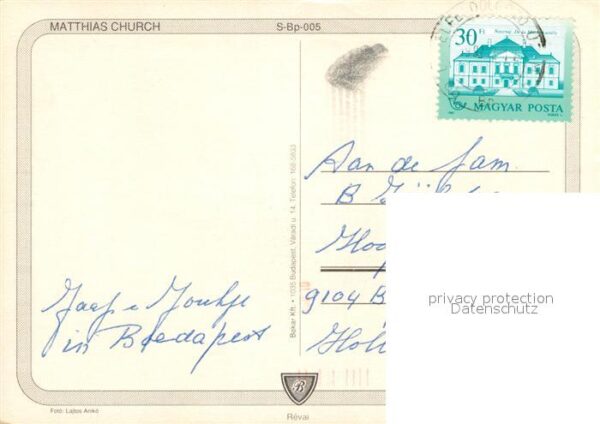 MATTHIAS CHURCH
S-Bp-005
30 Ft
MAGYAR POSTA
Aan de Fam.
B
Hoo
9104 B
Holl
privacy protection
Datenschutz
Jaap e Joukje
in Boedapest
Bakar Kft. • 1035 Budapest, Váradi u. 14. Telefon: 168-5633
Fotó: Lajtos Anikó
Révai